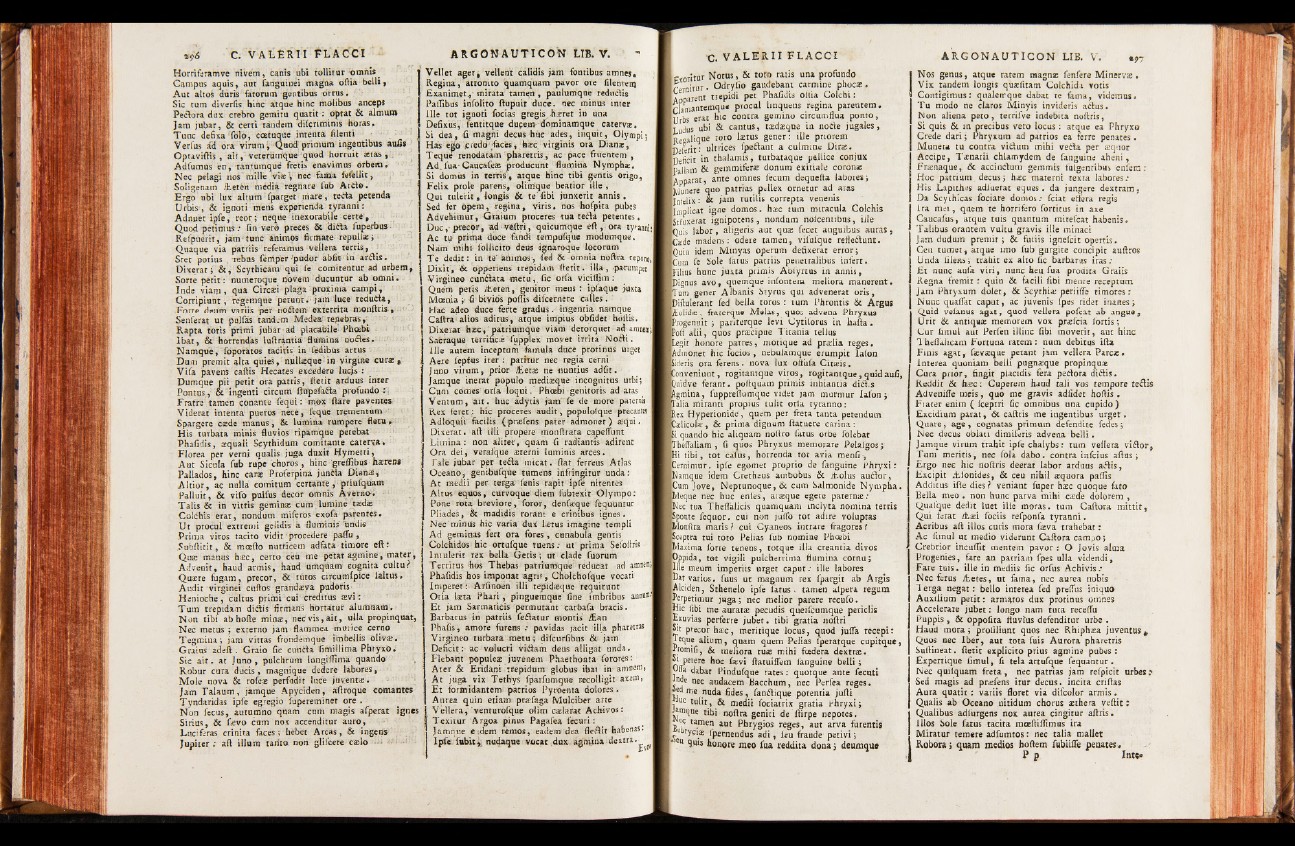 296 C. VALERII FLACCI
Horriferamve nivem, canis ubi tollitur omnis
Campus aquis, aut ſanguinei magna oſtia belli,
Aut altos duris fatorum gentibus ortus.
Sic tum diverſis hinc atque hinc molibus anceps
Pectora dux crebro gemitu quatit: optat & almum
Jam jubar, & certi tandem diſcriminis horas.
Tunc defixa ſolo, cœtuque intenta ſilenti
Verſus ad ora virum, Quod primum ingentibus auſis
Optaviſtis, ait, veterumque quod horruit ætas,
Adſumus en, tantumque fretis enavimus orbem.
Nec pelagi nos mille viæ, nec fama fefellit,
Soligenam Æeten media regnare ſub Arcto.
Ergo ubi lux altum ſparget mare, tecta petenda
Urbis, & ignoti mens experienda tyranni:
Adnuet ipſe, reor; neque inexorabile certe,
Quod petimus: ſin vero preces & dicta ſuperbus
Reſpuerit, jam tunc animos firmate repulſæ;
Quaque via patriis referamus vellera terris,
Stet potius, rebus ſemper pudor abſit in arctis.
Dixerat; &, Scythicam qui ſe comitentur ad urbem,
Sorte petit: numeroque novem ducuntur ab omni.
Inde viam, qua Circæi plaga proxima campi,
Corripiunt, regemque petunt, jam luce reducta,
Forte deum variis per noctem exterrita monſtris,
Senſerat ut pulſas tandem Medea tenebras,
Rapta toris primi jubar ad placabile Phœbi
Ibat, & horrendas luſtrantia flumina noctes.
Namque, ſoporatos tacitis in ſedibus artus
Dum premit alta quies, nullæque in virgine curæ,
Viſa pavens caſtis Hecates excedere lucis:
Dumque pii petit ora patris, ſtetit arduus inter
Pontus, & ingenti circum ſtupefacta profundo:
Fratre tamen conante ſequi: mox ſtare paventes
Viderat intenta pueros nece, ſeque trementum
Spargere cæde manus, & lumina rumpere fletu.
His turbata minis fluvios ripamque petebat
Phaſidis, æquali Scythidum comitante caterva.
Florea per verni qualis juga duxit Hymetti,
Aut Sicula ſub rupe choros, hinc greſſibus hærens
Pallados, hinc caræ Proſerpina juncta Dianæ,
Altior, ac nulla comitum certante, priuſquam
Palluit, & viſo pulſus decor omnis Averno.
Talis & in vittis geminæ cum lumine tædæ
Colchis erat, nondum miſeros exoſa parentes.
Ut procul extremi gelidis a fluminis undis
Prima viros tacito vidit procedere paſſu,
Subſtitit, & mœſto nutricem adfata timore eſt:
Quæ manus hæc, certo ceu me petat agmine, mater,
Advenit, haud armis, haud umquam cognita cultu?
Quære fugam, precor, & tutos circumſpice ſaltus.
Audit virginei cuſtos grandæva pudoris
Henioche, cultus primi cui creditus ævi:
Tum trepidam dictis firmans hortatur alumnam.
Non tibi ab hoſte minæ, nec vis, ait, ulla propinquat,
Nec metus; externo jam flammea murice cerno
Tegmina; jam vittas frondemque imbellis olivæ.
Graius adeſt. Graio ſic cuncta ſimillima Phryxo.
Sic ait. at Juno, pulchrum longiſſima quando
Robur cura ducis, magnique dedere labores,
Mole nova & roſeæ perfudit luce juventæ.
Jam Talaum, jamque Apyciden, aſtroque comantes
Tyndaridas ipſe egregio ſupereminet ore.
Non ſecus, autumno quam cum magis aſperat ignes
Sirius, & ſævo cum nox accenditur auro,
Luciferas crinita faces; hebet Arcas, & ingens
Jupiter: aſt illum tanto non gliſcere cælo
ARGONAUTICON LIB. V.
Vellet ager, vellent calidis jam fontibus amnes.
Regina, attonito quamquam pavor ore ſilentem
Exanimet, mirata tamen, paulumque reductis
Paſſibus inſolito ſtupuit duce. nec minus inter
Ille tot ignoti ſocias gregis hæret in una
Defixus, ſentitque ducem dominamque catervæ.
Si dea, ſi magni decus huc ades, inquit, Olympi;
Has ego credo faces, hæc virginis ora Dianæ,
Teque renodatam pharetris, ac pace fruentem,
Ad ſua Caucaſeæ producunt flumina Nymphæ.
Si domus in terris, atque hinc tibi gentis origo,
Felix prole parens, olimque beatior ille,
Qui tulerit, longis & te ſibi junxerit annis.
Sed fer opem, regina, viris. nos hoſpita pubes
Advehimur, Graium proceres tua tecta petentes.
Duc, precor, ad veſtri, quicumque eſt, ora tyranni;
Ac tu prima doce fandi tempuſque modumque.
Nam mihi ſollicito deus ignaroque locorum
Te dedit: in te animos, ſed & omnia noſtra repono.
Dixit, & opperiens trepidam ſtetit. illa, parumper
Virgineo cunctata metu, ſic orſa viciſſim:
Quem petis Æeten, genitor meus: ipſaque juxta
Mœnia, ſi bivios poſſis diſcernere calles.
Hac adeo duce ferte gradus. ingentia namque
Caſtra alios aditus, atque impius obſidet hoſtis.
Dixerat hæc, patriumque viam detorquet ad amnem;
Sacraque terrificæ ſupplex movet irrita Nocti.
Ille autem inceptum famula duce protinus urget
Aere ſeptus iter: patitur nec regia cerni
Juno virum, prior Æetæ ne nuntius adſit.
Jamque inerat populo mediæque incognitus urbi;
Cum comes orſa loqui. Phœbi genitoris ad aras
Ventum, ait. huc adytis jam ſe de more paternis
Rex feret: hic proceres audit, populoſque precantes
Adloquii facilis (præſens pater admonet) æqui.
Dixerat. aſt illi propere monſtrata capeſſunt
Limina: non aliter, quam ſi radiantis adirent
Ora dei, veraſque æterni luminis arces.
Tale jubar per tecta micat. ſtat ferreus Atlas
Oceano, genibuſque tumens infringitur unda:
At medii per terga ſenis rapit ipſe nitentes
Altus equos, curvoque diem ſubtexit Olympo:
Pone rota breviore, ſoror, denſæque ſequuntur
Pliades, & madidis rorant e crinibus ignes.
Nec minus hic varia dux lætus imagine templi
Ad geminas fert ora fores, cunabula gentis
Colchidos hic ortuſque tuens: ut prima Seſoſtris
Intulerit rex bella Getis; ut clade ſuorum
Territus hos Thebas patriumque reducat ad amnem;
Phaſidis hos imponat agris, Cholchoſque vocari
Imperet: Arſinoen illi tepidæque requirunt
Otia læta Phari, pinguemque ſine imbribus annum:
Et jam Sarmaticis permutant carbaſa bracis.
Barbarus in patriis ſectatur montis Æan
Phaſis, amore furens: pavidas jacit illa pharetras
Virgineo turbata metu; diſcurſibus & jam
Deficit: ac volucri victam deus alligat unda.
Flebant populeæ juvenem Phaethonta ſorores:
Ater & Eridani trepidum globus ibat in amnem,
At juga vix Tethys ſparſumque recolligit axem,
Et formidantem patrios Pyroenta dolores.
Aurea quin etiam præſaga Mulciber arte
Vellera, venturoſque olim cælarat Achivos:
Texitur Argoa pinus Pagaſea ſecuri:
Jamque eadem remos, eadem dea flectit habenas:
Ipſe ſubit, nudaque vocat dux agmina dextra.
C. VALERII FLACCI
Exoritur Notus, & toto ratis una profundo
Cernitur. Odryſio gaudebant carmine phocæ.
Apparent trepidi per Phaſidis oſtia Colchi:
Clamantemque procul linquens regina parentem.
Urbs erat hic contra gemino circumflua ponto,
Ludus ubi & cantus, tædæque in nocte jugales,
Regalique toro lætus gener: ille priorem
Deſerit: ultrices ſpectant a culmine Diræ.
Deficit in thalamis, turbataque pellice conjux
Pallam & gemmiferæ donum exitiale coronæ
Apparat, ante omnes ſecum dequeſta labores;
Munere quo patrias pellex ornetur ad aras
Infelix: & jam rutilis correpta venenis
Implicat igne domos. hæc tum miracula Colchis
Struxerat ignipotens, nondum noſcentibus, ille
Quis labor, aligeris aut quæ ſecet anguibus auras,
Cæde madens: odere tamen, viſuſque reflectunt.
Quin idem Minyas operum defixerat error;
Cum ſe Sole ſatus patriis penetralibus infert.
Filius hunc juxta primis Abſyrtus in annis,
Dignus avo, quemque inſontem meliora manerent.
Tum gener Albanis Styrus qui advenerat oris,
Diſtulerant ſed bella toros: tum Phrontis & Argus
Æolidæ, fraterque Melas, quos advena Phryxus
Progenuit; pariterque levi Cytiſorus in haſta.
Poſt alii, quos præcipue Titania tellus
Legit honore patres, motique ad prælia reges.
Admonet hic ſocios, nebulamque erumpit Iaſon
Sideris ora ferens. nova lux offuſa Cytæis.
Conveniunt, rogitantque viros, rogitantque, quid auſi,
Quidve ferant. poſtquam primis inhiantia dictis
Agmina, ſuppreſſumque videt jam murmur Iaſon;
Talia miranti propius tulit orſa tyranno:
Rex Hyperionide, quem per freta tanta petendum
Cælicolæ, & prima dignum ſtatuere carina:
Si quando hic aliquam noſtro ſatus orbe ſolebat
Theſſaliam, ſi quos Phryxus memorare Pelaſgos;
Hi tibi, tot caſus, horrenda tot avia menſi,
Cernimur. ipſe egomet proprio de ſanguine Phryxi:
Namque idem Cretheus ambobus & Æolus auctor,
Cum Jove, Neptunoque, & cum Salmonide Nympha.
Meque nec huc enſes, aræque egere paternæ:
Nec tua Theſſalicis quamquam inclyta nomina terris
Sponte ſequor. cui non juſſo tot adire voluptas
Monſtra maris? cui Cyaneos intrare fragores?
Sceptra tui toto Pelias ſub nomine Phœbi
Maxima ſorte tenens, totque illa creantia divos
Oppida, tot vigili pulcherrima flumina cornu;
Ille meum imperiis urget caput: ille labores
Dat varios. ſuus ut magnum rex ſpargit ab Argis
Alciden, Sthenelo ipſe ſatus. tamen aſpera regum
Perpetimur juga; nec melior parere recuſo.
Hic ſibi me auratæ pecudis quæſcumque periclis
Exuvias perferre jubet. tibi gratia noſtri
Sit precor hæc, meritique locus, quod juſſa recepi:
Teque alium, quam quem Pelias ſperatque cupitque,
Promiſi, & meliora tuæ mihi fœdera dextræ.
Si petere hoc ſævi ſtatuiſſem ſanguine belli;
Oſſa dabat Pinduſque rates: quotque ante ſecuti
Inde nec audacem Bacchum, nec Perſea reges.
Sed me nuda fides, ſanctique potentia juſti
Huc tulit, & medii ſociatrix gratia Phryxi;
Jamque tibi noſtra geniti de ſtirpe nepotes.
Nec tamen aut Phrygios reges, aut arva furentis
Bebryciæ ſpernendus adi, ſeu fraude petivi;
Seu quis honore meo ſua reddita dona; deumque
ARGONAUTICON LIB. V. 297
Nos genus, atque ratem magnæ ſenſere Minervæ.
Vix tandem longis quæſitam Colchida votis
Contigimus: qualemque dabat te fama, videmus.
Tu modo ne claros Minyis invideris actus.
Non aliena peto, terriſve indebita noſtris,
Si quis & in precibus vero locus: atque ea Phryxo
Crede dari; Phryxum ad patrios ea ferre penates.
Munera tu contra victum mihi vecta per æquor
Accipe, Tænarii chlamydem de ſanguine aheni,
Frænaque, & accinctum gemmis fulgentibus enſem:
Hoc patrium decus; hæc materni texta labores:
His Lapithes adſuerat eques. da jungere dextram,
Da Scythicas ſociare domos: ſciat effera regis
Ira mei, quem te horrifero fortitus in axe
Caucaſus, atque tuis quantum miteſcat habenis.
Talibus orantem vultu gravis ille minaci
Jam dudum premit; & furiis igneſcit opertis.
Ceu tumet, atque imo ſub gurgite concipit auſtros
Unda ſilens; trahit ex alto ſic barbarus iras:
Et nunc auſa viri, nunc heu ſua prodita Graiis
Regna fremit: quin & facili ſibi mente receptum
Jam Phryxum dolet, & Scythiæ periiſſe timores:
Nunc quaſſat caput, ac juvenis ſpes ridet inanes;
Quid velanus agat, quod vellera poſcat ab angue,
Urit & antiquæ memorem vox præſcia ſortis;
Cur ſimul aut Perſen illinc ſibi moverit, aut hinc
Theſſalicam Fortuna ratem: num debitus iſta
Finis agat, ſævæque petant jam vellera Parcæ.
Interea quoniam belli pugnæque propinquæ
Cura prior, fingit placidis fera pectora dictis.
Reddit & hæc: Cuperem haud tali vos tempore tectis
Adveniſſe meis, quo me gravis adſidet hoſtis.
Frater enim (ſceptri ſic omnibus una cupido)
Excidium parat, & caſtris me ingentibus urget.
Quare, age, cognatas primum defendite ſedes;
Nec decus oblati dimiſeris advena belli.
Tum meritis, nec ſola dabo. contra inſcius aſtus;
Ergo nec hic noſtris deerat labor arduus actis,
Excipit Æſonides, & ceu nihil æquora paſſis
Additus iſte dies? veniant ſuper hæc quoque fato
Bella meo. non hunc parva mihi cæde dolorem,
Qualque dedit luet ille moras. tum Caſtora mittit,
Qui ferat Æaei ſociis reſponſa tyranni.
Acribus aſt illos curis mora ſæva trahebat:
Ac ſimul ut medio viderunt Caſtora campo;
Crebrior incuſſit mentem pavor: O Jovis alma
Progenies, fare an patriam ſpes ulla videndi,
Fare tuis. ille in mediis ſic orſus Achivis:
Nec ferus Æetes, ut fama, nec aurea nobis
Terga negat: bello interea ſed preſſus iniquo
Auxilium petit: armatos dux protinus omnes
Accelerare jubet: longo nam tuta receſſu
Puppis, & oppoſita fluvius defenditur urbe.
Haud mora; proſiliunt quos nec Rhiphæa juventus,
Quos nec Iber, aut tota ſuis Aurora pharetris
Suſtineat. ſtetit explicito prius agmine pubes:
Expertique ſimul, ſi tela artuſque ſequantur.
Nec quiſquam freta, nec patrias jam reſpicit urbes:
Sed magis ad præſens itur decus. incita criſtas
Aura quatit: variis floret via diſcolor armis.
Qualis ab Oceano nitidum chorus æthera veſtit;
Qualibus adſurgens nox aurea cingitur aſtris.
Illos Sole ſatus tacita mœſtiſſimus ira
Miratur temere adſumtos: nec talia mallet
Robora; quam medios hoſtem ſubiiſſe penates.
P p Inte-